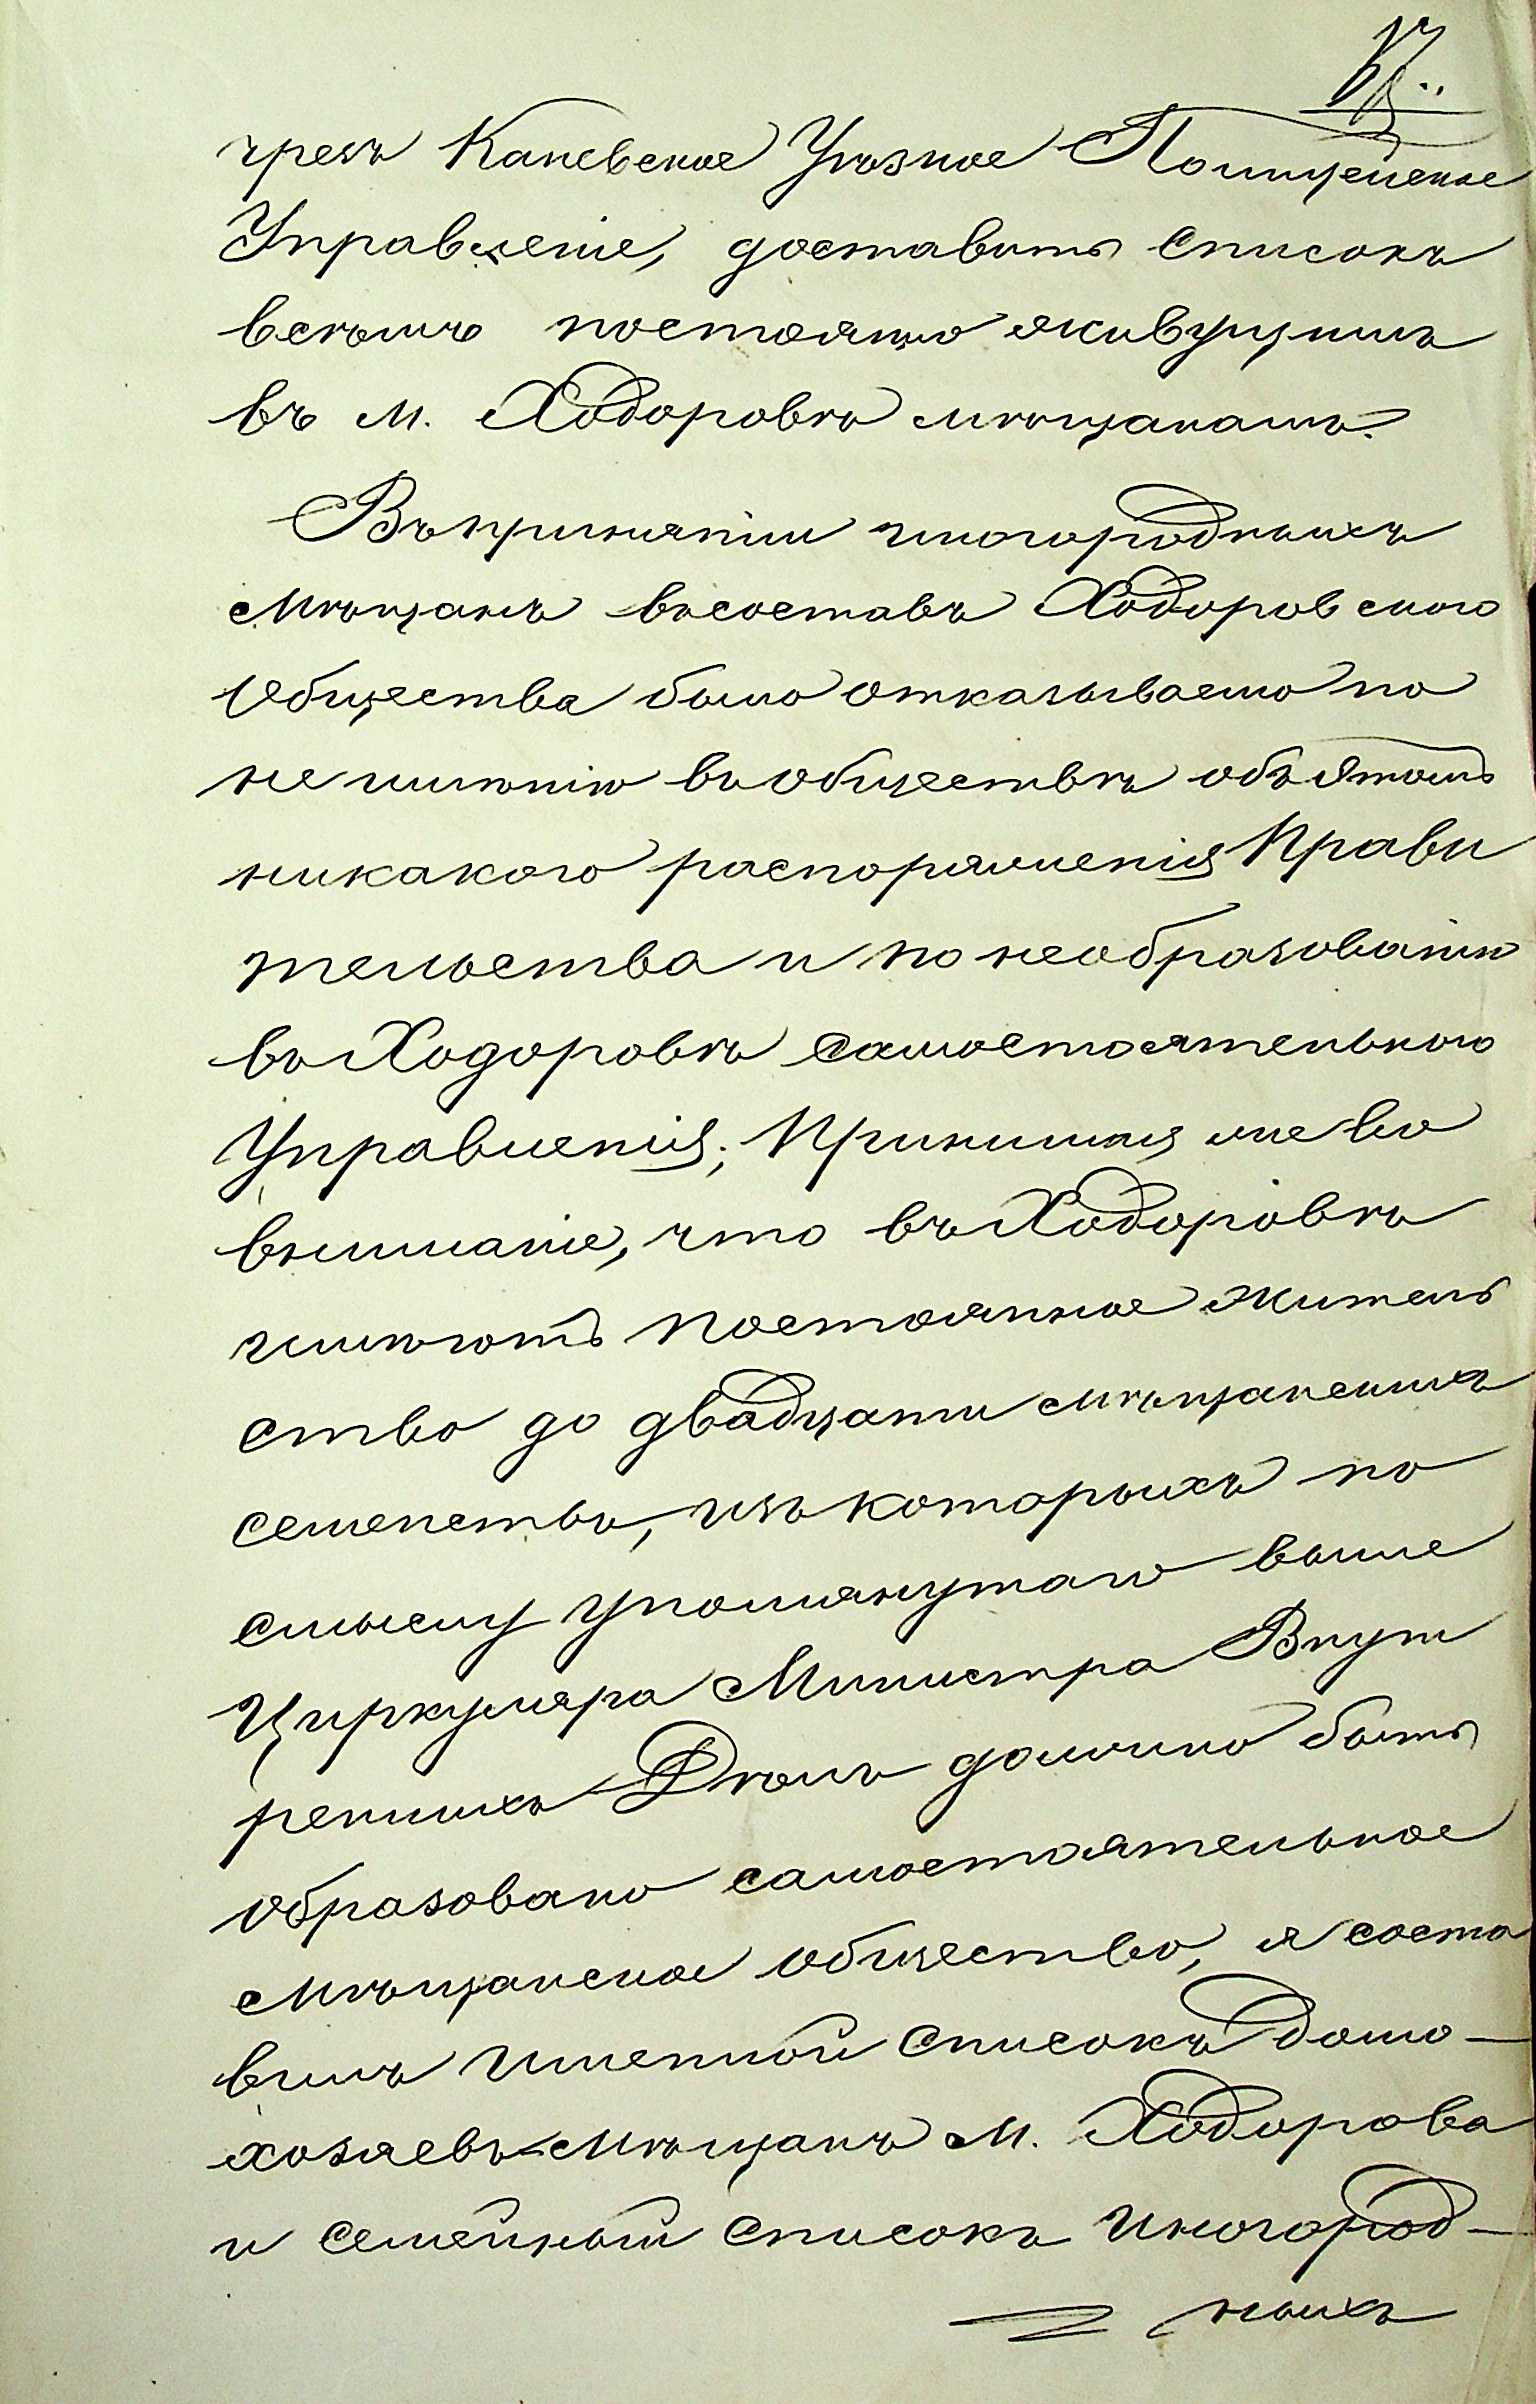 чрезъ Каневское Уѣздное Полицейское
Управленіе, доставить списокъ
всѣмъ постоянно живущимъ
въ м. Ходоровѣ мѣщанамъ.
Въ принятіи иногородныхъ
мѣщанъ въ составъ Ходоровского
общества было отказываемо по
не имѣнію въ обществѣ объ этомъ
никакого распоряженія Прави
тельства и по необразованію
въ Ходоровѣ самостоятельного
Управленія; Принимая же во
вниманіе, что въ Ходоровѣ
имѣютъ постоянное житель
ство до двадцати мѣщанскихъ
семействъ, изъ которыхъ по
смыслу упомянутаго выше
Циркуляра Министра Внут
реннихъ Дѣлъ должно быть
образовано самостоятельное
мѣщанское общество, я соста
вилъ именной списокъ домо-
хозяевъ мѣщанъ м. Ходорова
и семейный списокъ иногород-
ныхъ